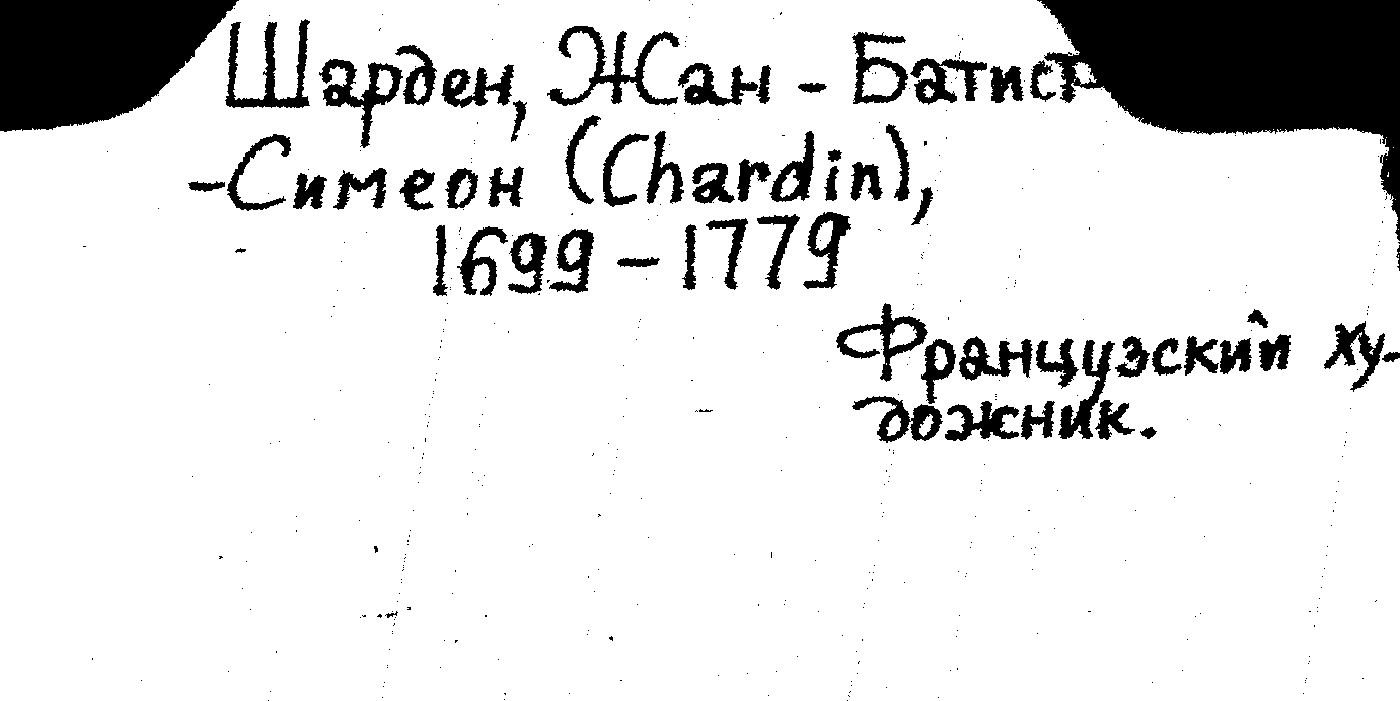 Шарден, Жан - Батист
-Симеон (Chardin),
1699 - 1779
Французский ху-
дожник.